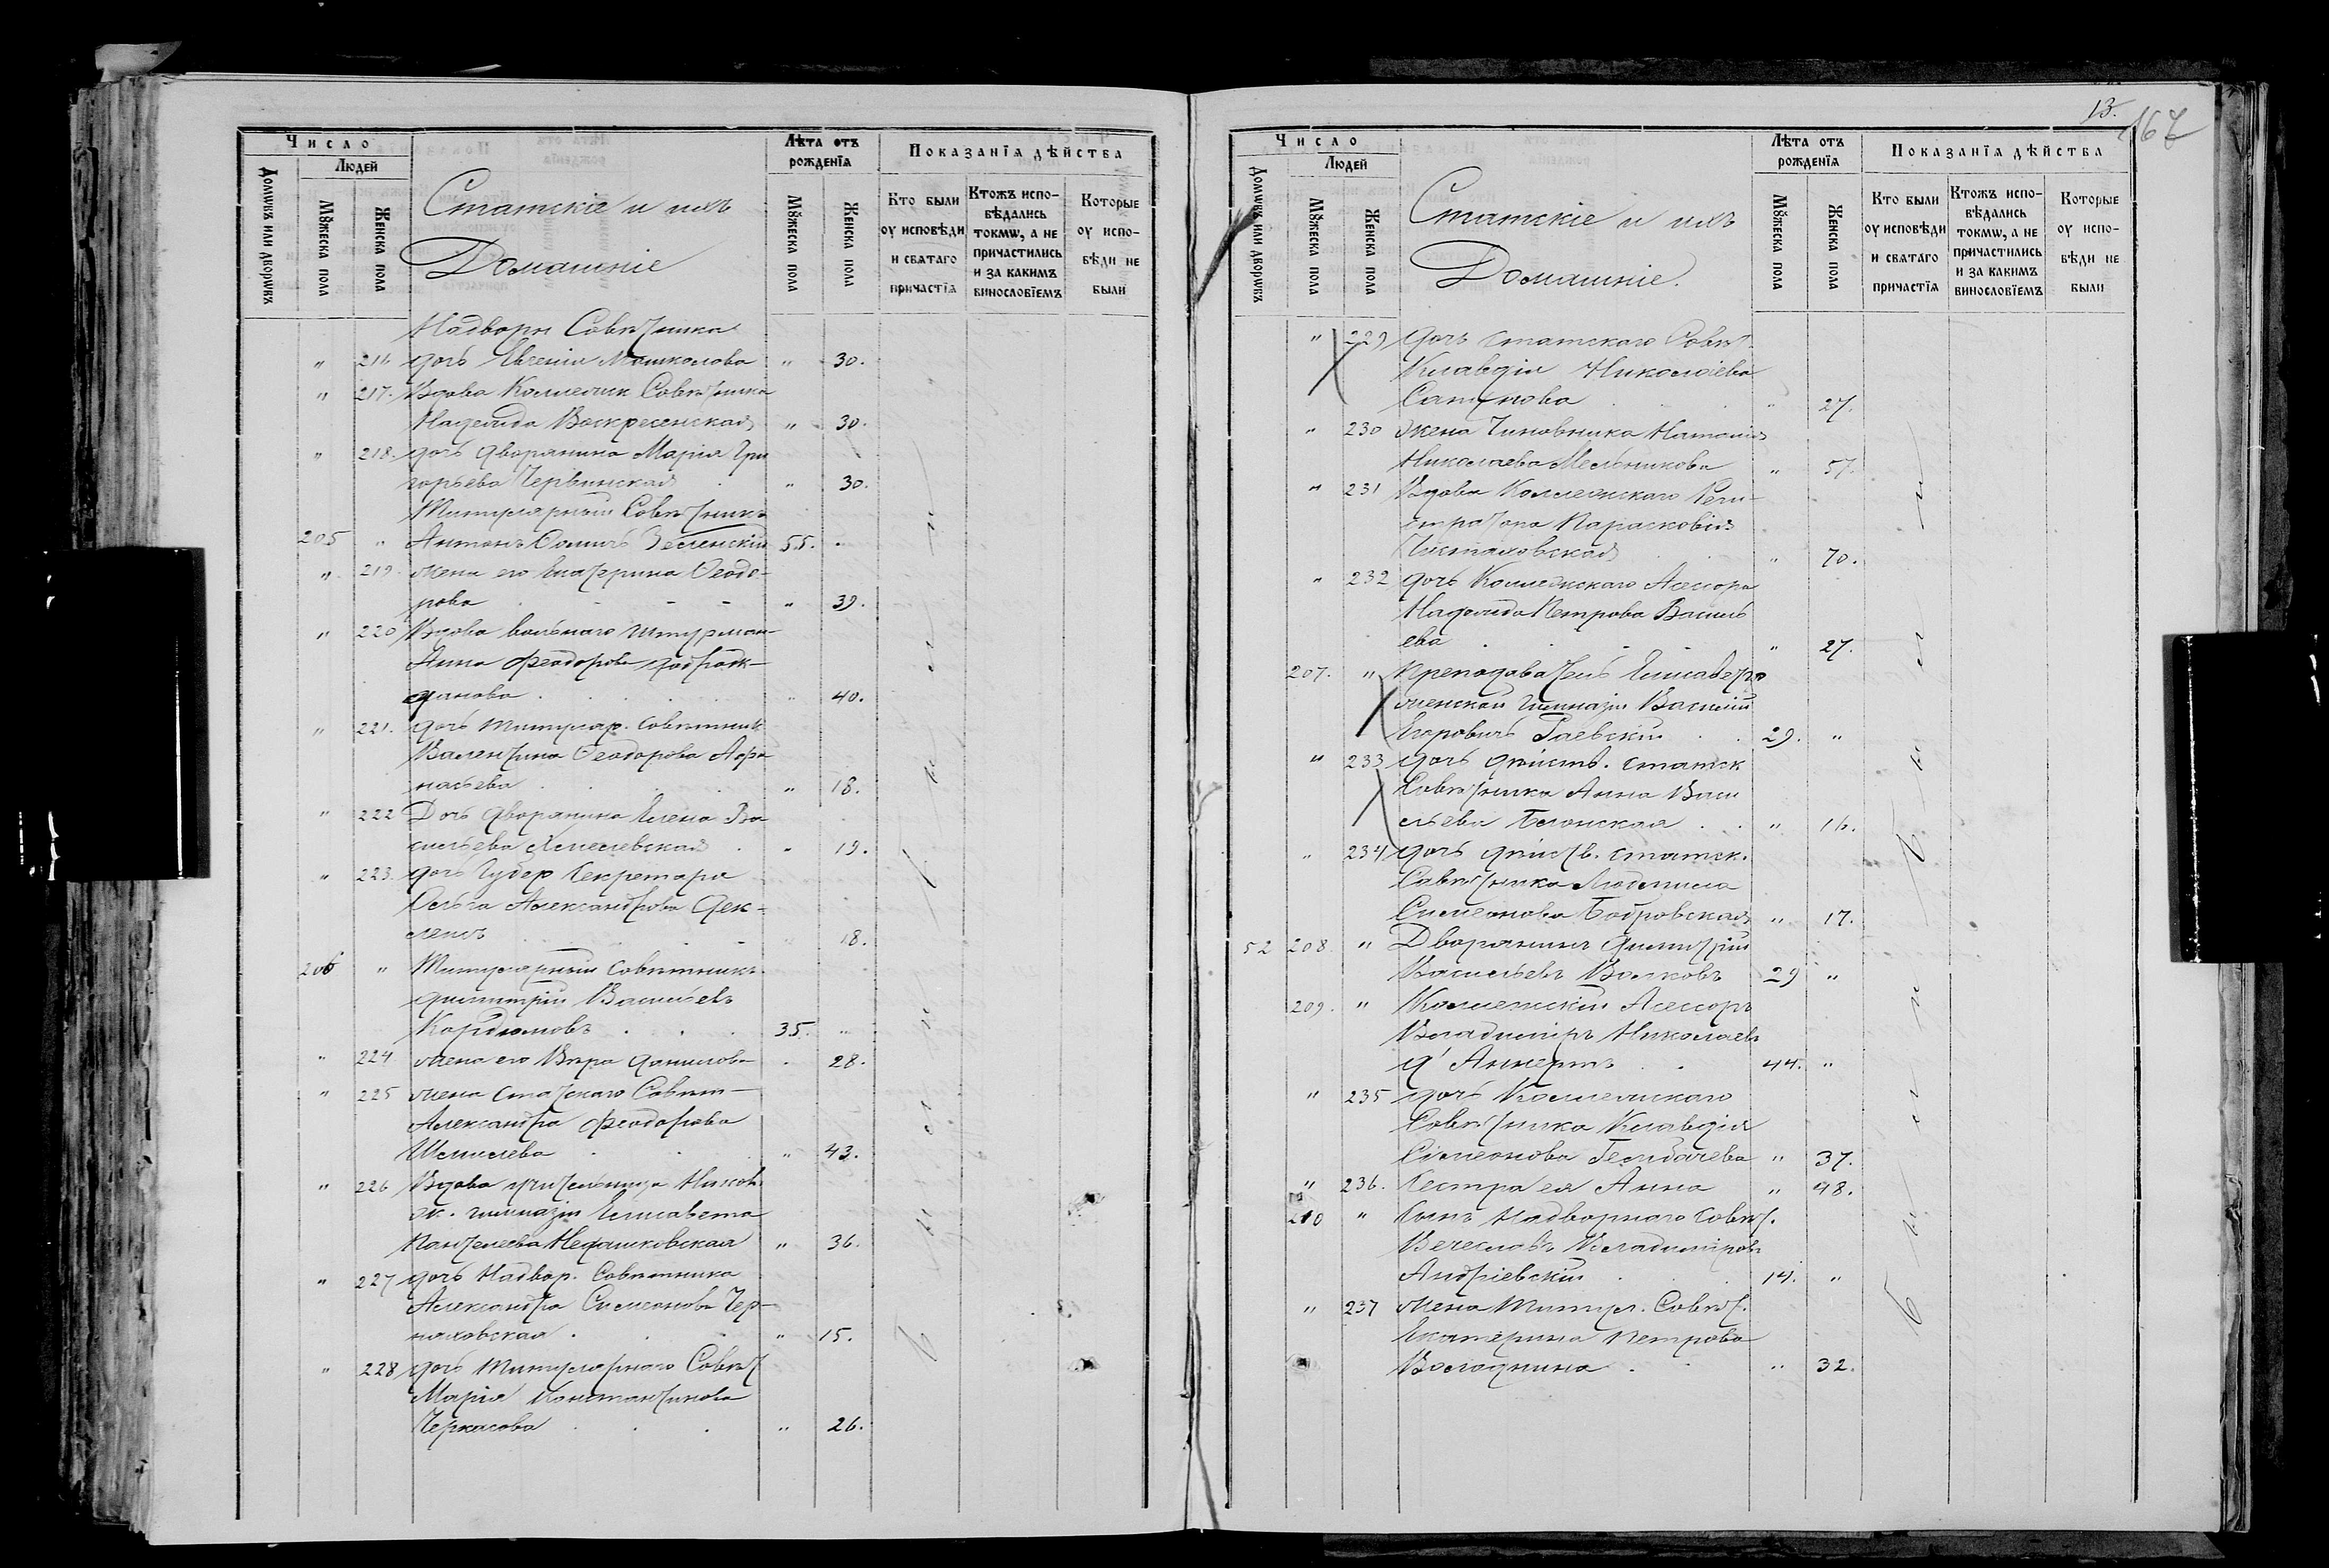 Число
Людей
Домѡвъ или дворѡвъ
Мꙋжеска пола
Женска пола
Статскіе и ихъ
Домашніе
Лѣта отъ
рожденїя
Мꙋжеска пола
Женска пола
Показанїя дѣйства
Кто были
оу исповѣди
и святаго
причастїя
Ктожъ испо-
вѣдались
токмѡ, а не
причастились
и за какимъ
винословїемъ
Которые
оу испо-
вѣди не
были
Надворн Совѣтника
" 216 дочь Евгенія Мошколова " 30.
" 217. Вдова Коллежск Совѣтника
Надежда Воскресенская " 30.
" 218. дочь дворянина Марія Гри
горьева Червинская " 30.
Титулярный Совѣтникъ
205 " Антонъ Ѳомичъ Зеленскій 55.
" 219 жена его Екатерина Ѳеодо-
рова " 39.
" 220 Вдова вольнаго штурман-
Анна Феодорова
" 40.
" 221. дочь титуляр. совѣтник
Валентина Ѳеодорова Афа
насьева " 18.
" 222 Дочь дворянина Елена Ва
сильева " 19.
" 223. дочь Губер Секретаря
Ольга Александрова
18.
206 " Титулярный совѣтникъ
Димитрій Васильевъ
Кардюмовъ 35. "
" 224 жена его Вѣра Данилова 28.
" 225 жена статскаго Совѣт-
Александра Феодорова
Шмелева " 43.
" 226 Вдова учительница Никол.
ж. гимназіи Елисавета
Пантелеева Недашковская " 36.
" 227 дочь Надвор. Совѣтника
Александра Симеонова Чер-
няховская " 15.
" 228 дочь титулярнаго Совѣт
Марія Константинова
Черкасова " 26.
были
были
13.
167
Число
Людей
Домѡвъ или дворѡвъ
Мꙋжеска пола
Женска пола
Статскіе и ихъ
Домашніе.
Лѣта отъ
рожденїя
Мꙋжеска пола
Женска пола
Показанїя дѣйства
Кто были
оу исповѣди
и святаго
причастїя
Ктожъ испо-
вѣдались
токмѡ, а не
причастились
и за какимъ
винословїемъ
Которые
оу испо-
вѣди не
были
" 229 дочь статскаго Совѣт.
Клавдія Николаева
" 27.
" 230 жена Чиновника Наталія
Николаева Мельникова " 57.
" 231 Вдова Коллежскаго Реги-
стратора Парасковія
" 70.
" 232 дочь Коллежскаго Асессора
Надежда Петрова Василь
ева " 27.
207. " Преподаватель Елисавер
гимназіи Василій
Егоровичъ Раевскій 29. "
" 233 дочь дѣйств. статск
Совѣтника Анна Васи
льева Белонская " 16.
" 234 дочь дѣйств. статск.
Совѣтника Людмила
Симеонова Бобровская " 17.
52 208 " Дворянинъ Димитрій
Васильевъ Волковъ 29 "
209. " Коллежскій Асессоръ
Владиміръ Николаевъ
44. "
" 235 дочь Коллежскаго
Совѣтника Клавдія
Симеонова " 37.
" 236. Сестра ея Анна " 48.
210 " Сынъ Надворнаго Совѣт.
Вечеславъ Владиміровъ
Андріевскій 14. "
" 237 жена Титул. Совѣт.
Екатерина Петрова
Володина " 32.
были
были